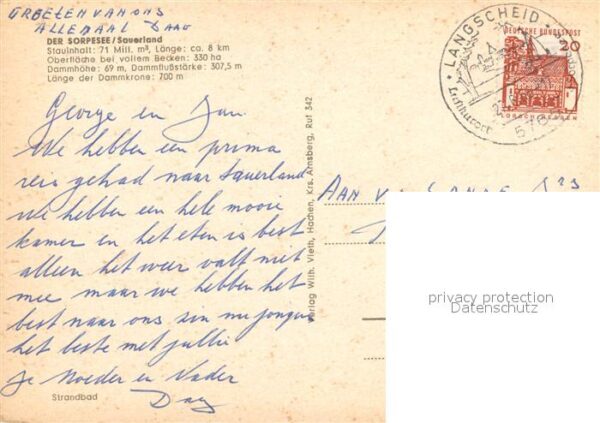 GROETEN VAN ONS
ALLEMAAL DAAG
DER SORPESEE/Sauerland
Stauinhalt: 71 Mill. m³, Länge: ca. 8 km
Oberfläche bei vollem Becken: 330 ha
Dammhöhe: 69 m, Dammflußstärke: 307,5 m
Länge der Dammkrone: 700 m
George en Jan.
We hebben een prima
reis gehad naar Sauerland
We hebben een hele mooie
kamer en het eten is best
alleen het weer valt niet
mee maar we hebben het
best naar ons zin nu jongens
het beste met jullie
je Moeder en Vader
Dag
Strandbad
Verlag Wilh. Vieth, Hachen, Krs. Arnsberg, Ruf 342
LANGSCHEID
Luftkurort
576
DEUTSCHE BUNDESPOST
20
LORSCH HESSEN
AAN
privacy protection
Datenschutz